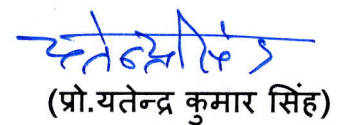 (प्रो.यतेन्द्र कुमार सिंह)